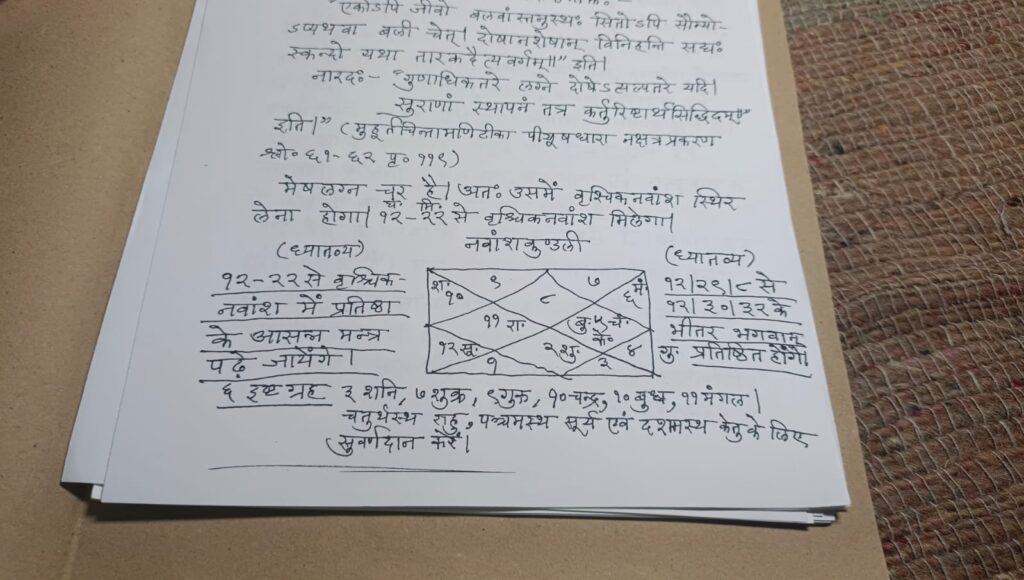 "एकोऽपि जीवो बलवांस्तनुस्थः सितोऽपि सौम्यो-
ऽप्यथवा बली चेत्। दोषानशेषान् विनिहन्ति सद्यः
स्कन्दो यथा तारकदैत्यवर्गम्॥" इति।
नारदः- "गुणाधिकतरे लग्ने दोषेऽत्यल्पतरे यदि।
सुराणां स्थापनं तत्र कर्तुरिष्टार्थसिद्धिदम्॥"
इति।" (मुहूर्तचिन्तामणिटीका पीयूषधारा नक्षत्रप्रकरण
श्लो॰ ६१-६२ पृ॰ ११९)
मेषलग्न चर है। अतः उसमें वृश्चिकनवांश स्थिर
घं॰ मि॰
लेना होगा। १२-२२ से वृश्चिकनवांश मिलेगा।
नवांशकुण्डली
(ध्यातव्य)
१२-२२ से वृश्चिक
नवांश में प्रतिष्ठा
के आसन्न मन्त्र
पढ़े जायेंगे।
श॰ ९ ७ मं॰
१० ८ ६
११ रा॰ बु॰ ५ चं॰
के॰
१२ सू॰ २ शु॰ ४ गु॰
१ ३
(ध्यातव्य)
१२।२९।८ से
१२।३०।३२ के
भीतर भगवान्
प्रतिष्ठित होंगे।
६ इष्ट ग्रह ३ शनि, ७ शुक्र, ९ गुरु, १० चन्द्र, १० बुध, ११ मंगल।
चतुर्थस्थ राहु, पञ्चमस्थ सूर्य एवं दशमस्थ केतु के लिए
सुवर्णदान करें।